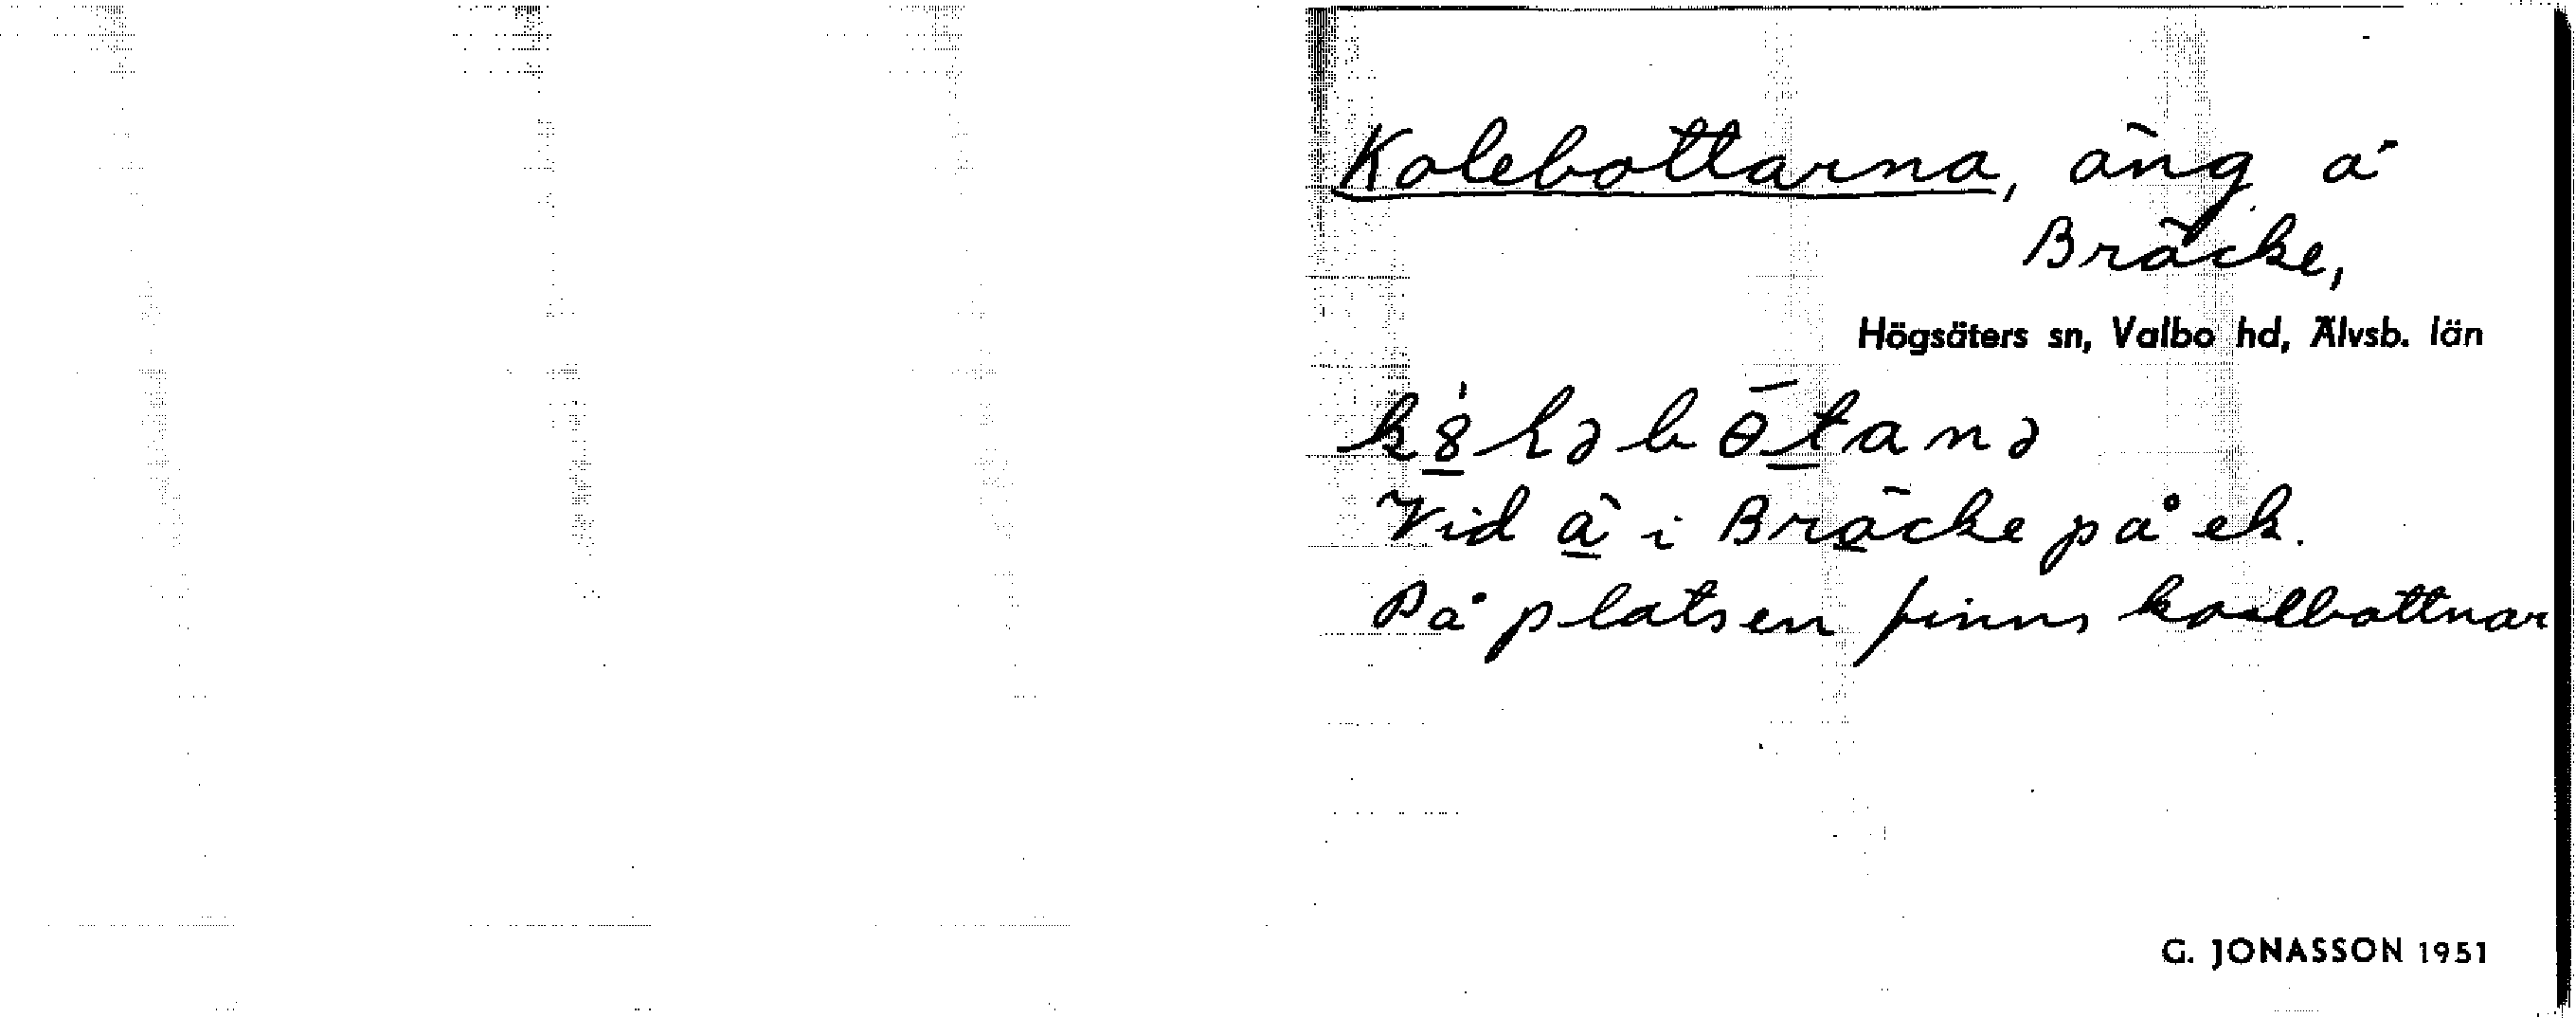 Kolebottarna, äng å
Bräcke,
Högsäters sn, Valbo hd, Älvsb. län
Vid ä i Bräcke på ek.
På platsen finns kolbottnar
G. JONASSON 1951